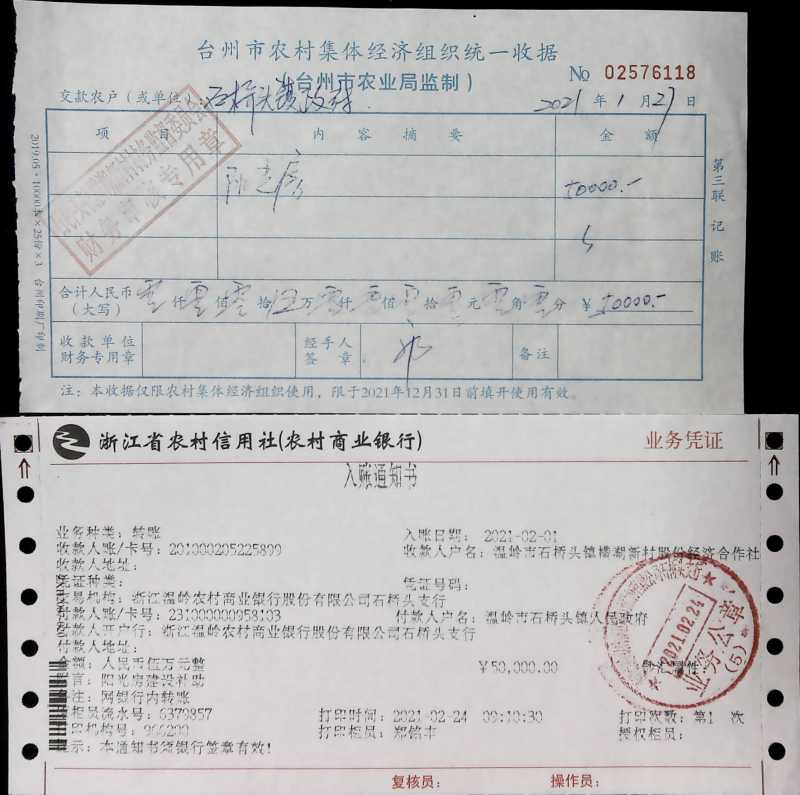 台州市农村集体经济组织统一收据
(台州市农业局监制)
No 02576118
交款农户(或单位):石桥头镇政府
2021 年 1 月 27 日
项 目 内 容 摘 要 金 额
阳光房 50000.-
合计人民币(大写) 零仟零佰零拾伍万零仟零佰零拾零元零角零分 ¥ 50000.-
收款单位财务专用章 经手人签章 备注
注:本收据仅限农村集体经济组织使用,限于2021年12月31日前填开使用有效。
第三联 记账
2019.05·10000本×25份×3 台州
财务审核专用章
浙江省农村信用社(农村商业银行) 业务凭证
入账通知书
业务种类:转账 入账日期:2021-02-01
收款人账/卡号:201000205225899 收款人户名:温岭市石桥头镇横湖新村股份经济合作社
收款人地址:
凭证种类: 凭证号码:
交易机构:浙江温岭农村商业银行股份有限公司石桥头支行
付款人账/卡号:231000000958103 付款人户名:温岭市石桥头镇人民政府
付款人开户行:浙江温岭农村商业银行股份有限公司石桥头支行
付款人地址:
金额:人民币伍万元整 ¥50,000.00
附言:阳光房建设补助
备注:网银行内转账
柜员流水号:6379857 打印时间:2021-02-24 09:10:30 打印次数:第1 次
打印机构号:966200 打印柜员:郑铭丰 授权柜员:
提示:本通知书须银行签章有效!
2021.02.24
业务公章
(5)
复核员: 操作员: